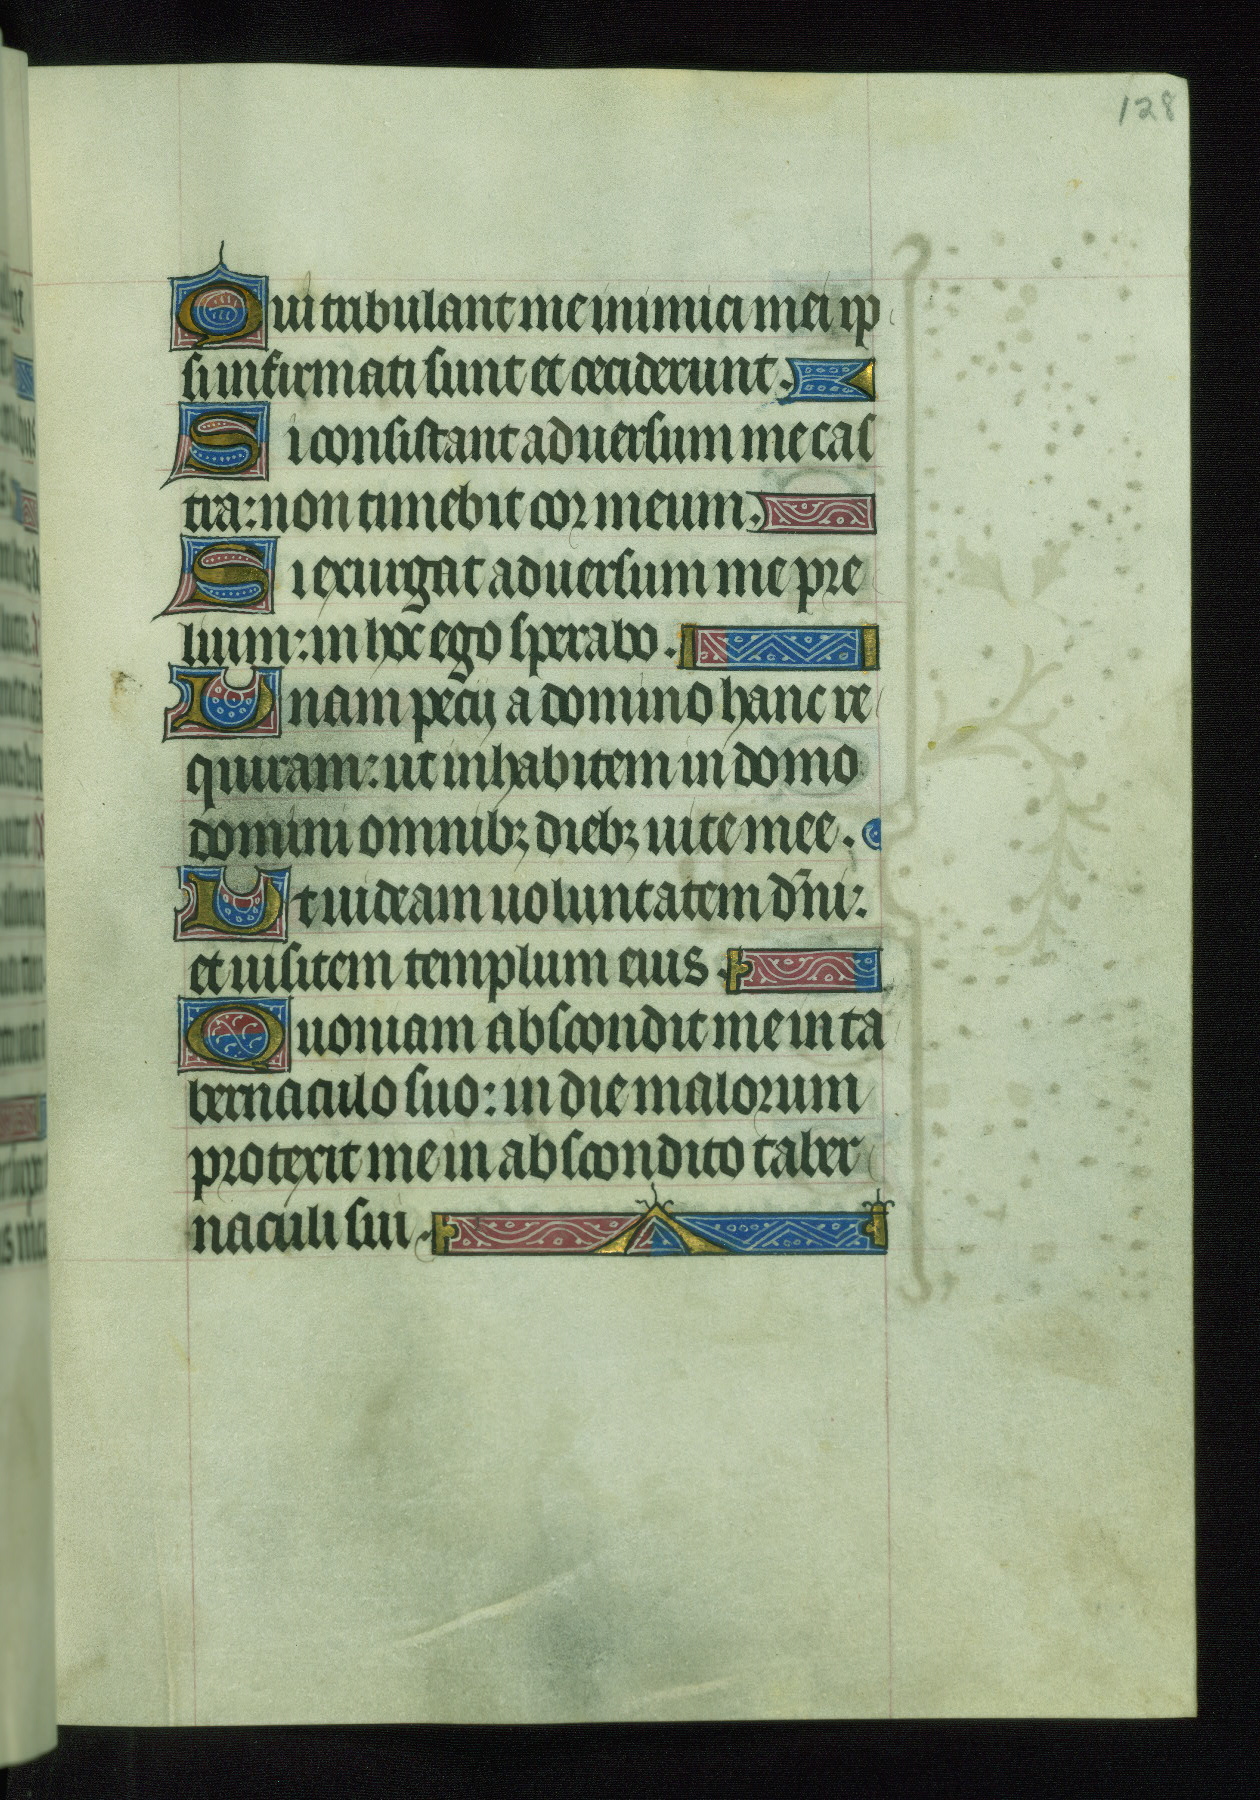 128
Qui tribulant me inimici mei ip
si infirmati sunt et ceciderunt.
Si consistant adversum me cas
tra: non timebit cor meum.
Si exurgat aduersum me pre
lium: in hoc ego sperabo.
Unam pecij a domino hanc re
quiram: ut inhabitem in domo
domini omnibꝫ diebꝫ uite mee.
Ut uideam uoluntatem dn̄i:
et uisitem templum eius.
Quoniam abscondit me in ta
bernaculo suo: in die malorum
protexit me in abscondito taber
naculi sui.